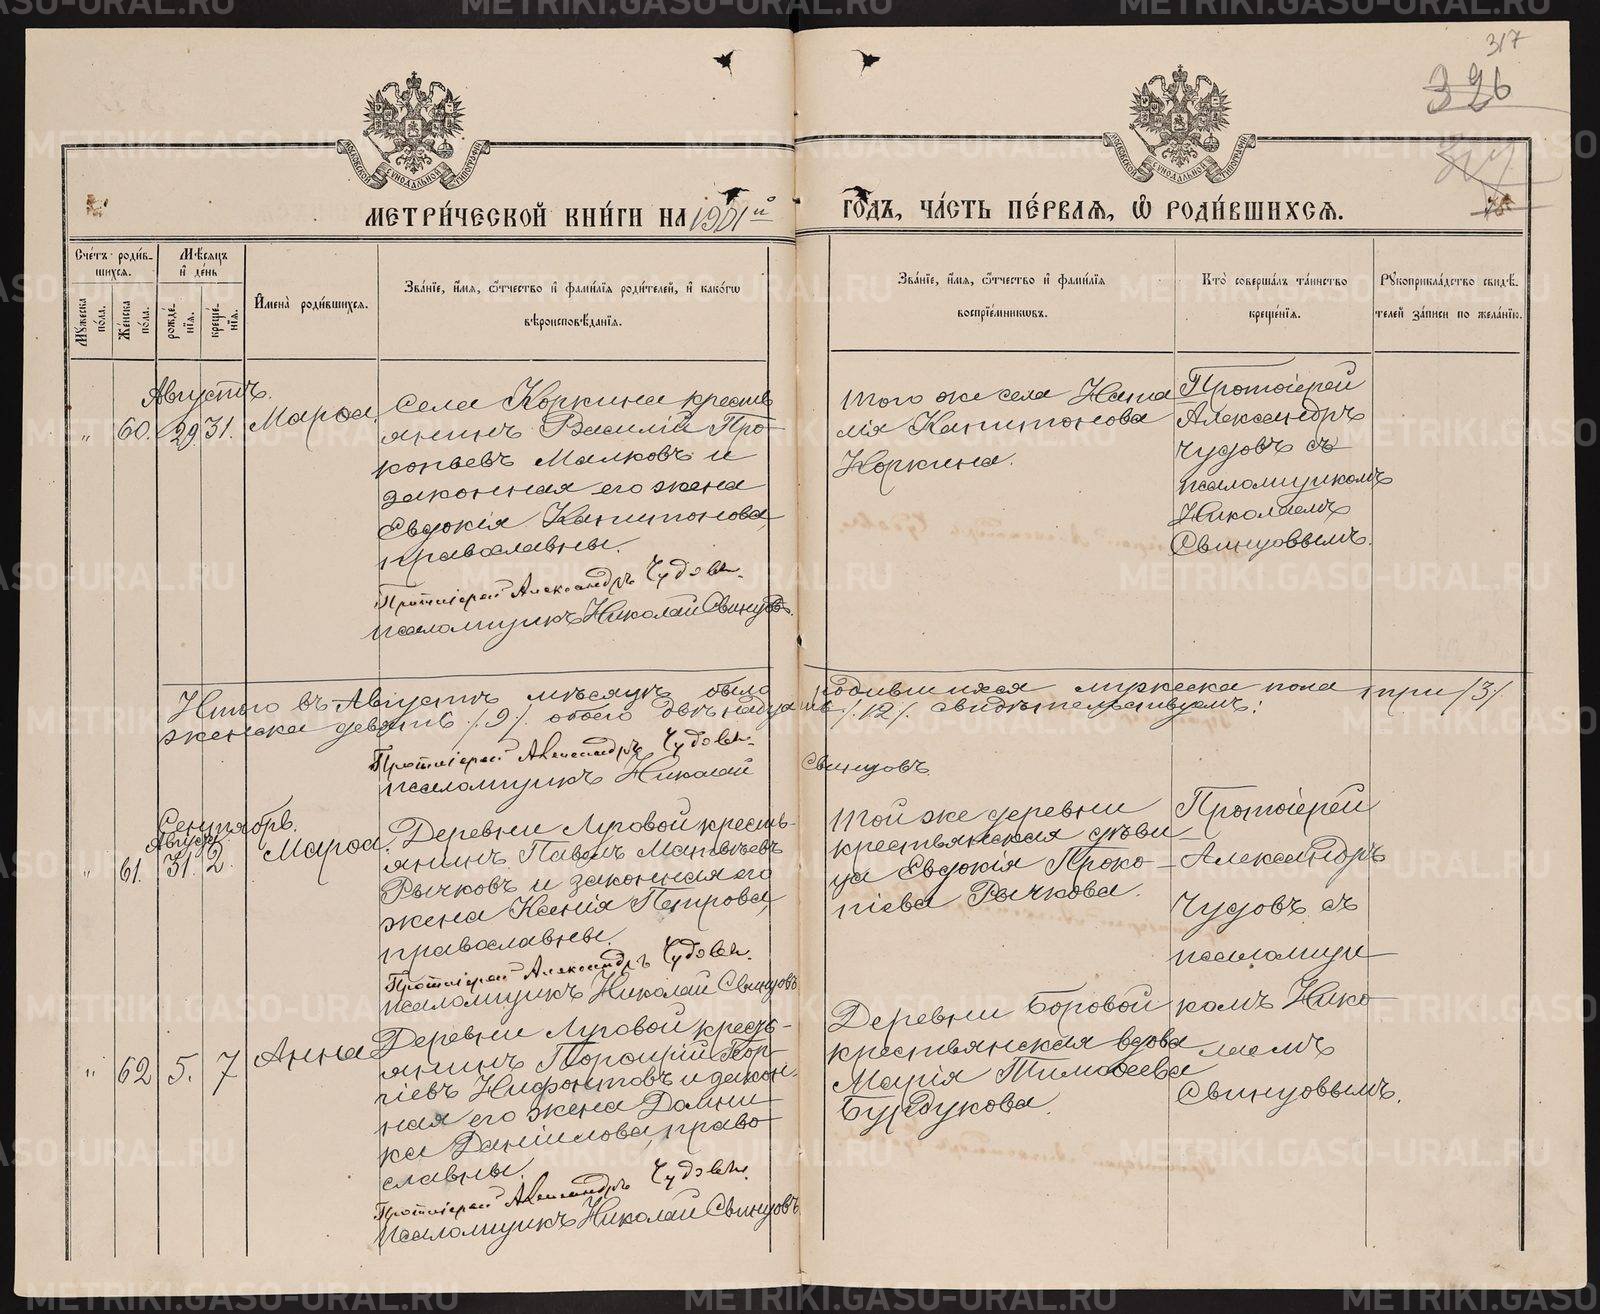 317
326
МЕТРИ́ЧЕСКОЙ КНИ́ГИ НА 1901й ГОДЪ, ЧА́СТЬ ПЕ́РВАЯ, Ѽ РОДИ́ВШИХСЯ.
Сче́тъ роди́в-
шихся.
Мꙋ́жеска по́ла.
Же́нска по́ла.
Мѣ́сяцъ
и҆ де́нь
рожде́-
нїя.
креще́-
нїя.
И҆мена̀ роди́вшихся.
Зва́нїе, и҆́мя, ѻ҆́тчество и҆ фами́лїя роди́телей, и҆ како́гѡ
вѣроисповѣ́данїя.
Зва́нїе, и҆́мя, ѻ҆́тчество и҆ фами́лїя
воспрїе́мникѡвъ.
Кто̀ соверша́лъ та́инство
креще́нїя.
Рꙋкоприкла́дство свидѣ́-
телей за́писи по жела́нїю.
Августъ.
" 60. 29 31. Марѳа.
Села Коркина кресть
янинъ Василій Про-
копьевъ Малковъ и
законная его жена
Евдокія Капитонова,
православны.
Протоіерей Александръ Чудовъ.
псаломщикъ Николай Свинцовъ.
того же села Ната
лія Капитонова
Коркина.
Протоіерей
Александръ
Чудовъ съ
псаломщикомъ
Николаемъ
Свинцовымъ.
Итого въ Августѣ мѣсяцѣ было родившихся мужеска пола три /3/.
женска девять /9/. обоего двѣнадцать /12/. свидѣтельствуемъ:
Протоіерей Александръ Чудовъ.
псаломщикъ Николай Свинцовъ.
Сентябрь.
Август
" 61. 31. 2. Марѳа.
Деревни Луговой кресть-
янинъ Павелъ Матвѣевъ
Рычковъ и законная его
жена Ксенія Петрова,
православны.
Протоіерей Александръ Чудовъ.
псаломщикъ Николай Свинцовъ
той же деревни
крестьянская дѣви
ца Евдокія Проко-
піева Рычкова.
Протоіерей
Александръ
Чудовъ съ
псаломщи
комъ Нико
лаемъ
Свинцовымъ.
" 62 5. 7 Анна
Деревни Луговой кресть-
янинъ Порфирій Геор-
гіевъ Нифонтовъ и закон.
ная его жена Домни-
ка Даніилова, право-
славны.
Протоіерей Александръ Чудовъ.
псаломщикъ Николай Свинцовъ
Деревни Боровой
крестьянская вдова
Марія Тимофеева
Бурдукова.